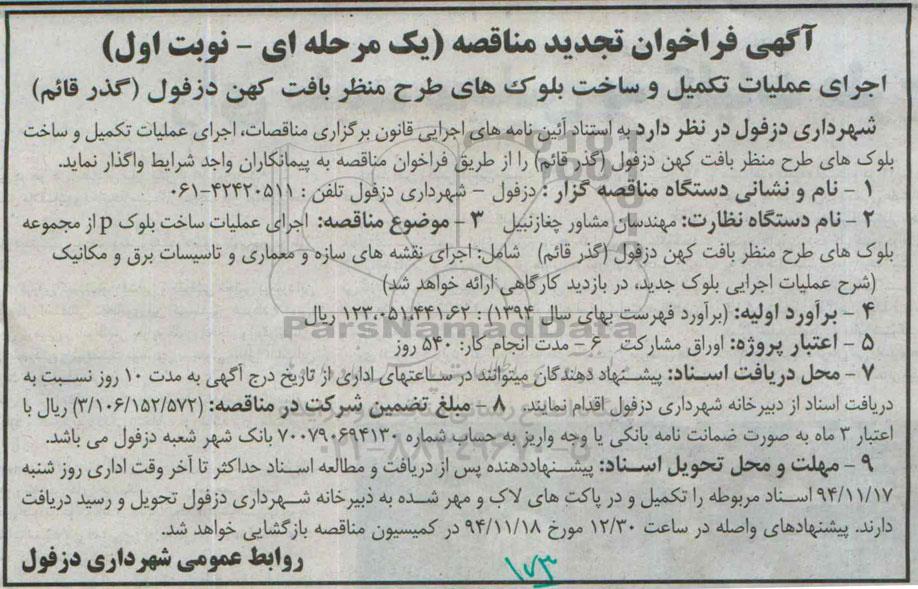 آگهی فراخوان تجدید مناقصه (یک مرحله ای - نوبت اول)
اجرای عملیات تکمیل و ساخت بلوک های طرح منظر بافت کهن دزفول (گذر قائم)
شهرداری دزفول در نظر دارد به استناد آئین نامه های اجرایی قانون برگزاری مناقصات، اجرای عملیات تکمیل و ساخت
بلوک های طرح منظر بافت کهن دزفول (گذر قائم) را از طریق فراخوان مناقصه به پیمانکاران واجد شرایط واگذار نماید.
۱ - نام و نشانی دستگاه مناقصه گزار : دزفول - شهرداری دزفول تلفن : ۴۲۴۲۰۵۱۱-۰۶۱
۲ - نام دستگاه نظارت: مهندسان مشاور چغازنبیل ۳ - موضوع مناقصه: اجرای عملیات ساخت بلوک p از مجموعه
بلوک های طرح منظر بافت کهن دزفول (گذر قائم) شامل: اجرای نقشه های سازه و معماری و تاسیسات برق و مکانیک
(شرح عملیات اجرایی بلوک جدید، در بازدید کارگاهی ارائه خواهد شد)
۴ - برآورد اولیه: (برآورد فهرست بهای سال ۱۳۹۴) : ۱۲۳،۰۵۱،۴۴۱،۶۲ ریال
ParsNamadData
۵ - اعتبار پروژه: اوراق مشارکت ۶ - مدت انجام کار: ۵۴۰ روز
۷ - محل دریافت اسناد: پیشنهاد دهندگان میتوانند در ساعتهای اداری از تاریخ درج آگهی به مدت ۱۰ روز نسبت به
دریافت اسناد از دبیرخانه شهرداری دزفول اقدام نمایند. ۸ - مبلغ تضمین شرکت در مناقصه: (۳/۱۰۶/۱۵۲/۵۷۲) ریال با
اعتبار ۳ ماه به صورت ضمانت نامه بانکی یا وجه واریز به حساب شماره ۷۰۰۷۹۰۶۹۴۱۳۰ بانک شهر شعبه دزفول می باشد.
۹ - مهلت و محل تحویل اسناد: پیشنهاددهنده پس از دریافت و مطالعه اسناد حداکثر تا آخر وقت اداری روز شنبه
۹۴/۱۱/۱۷ اسناد مربوطه را تکمیل و در پاکت های لاک و مهر شده به دبیرخانه شهرداری دزفول تحویل و رسید دریافت
دارند. پیشنهادهای واصله در ساعت ۱۲/۳۰ مورخ ۹۴/۱۱/۱۸ در کمیسیون مناقصه بازگشایی خواهد شد.
روابط عمومی شهرداری دزفول
۱۷۳